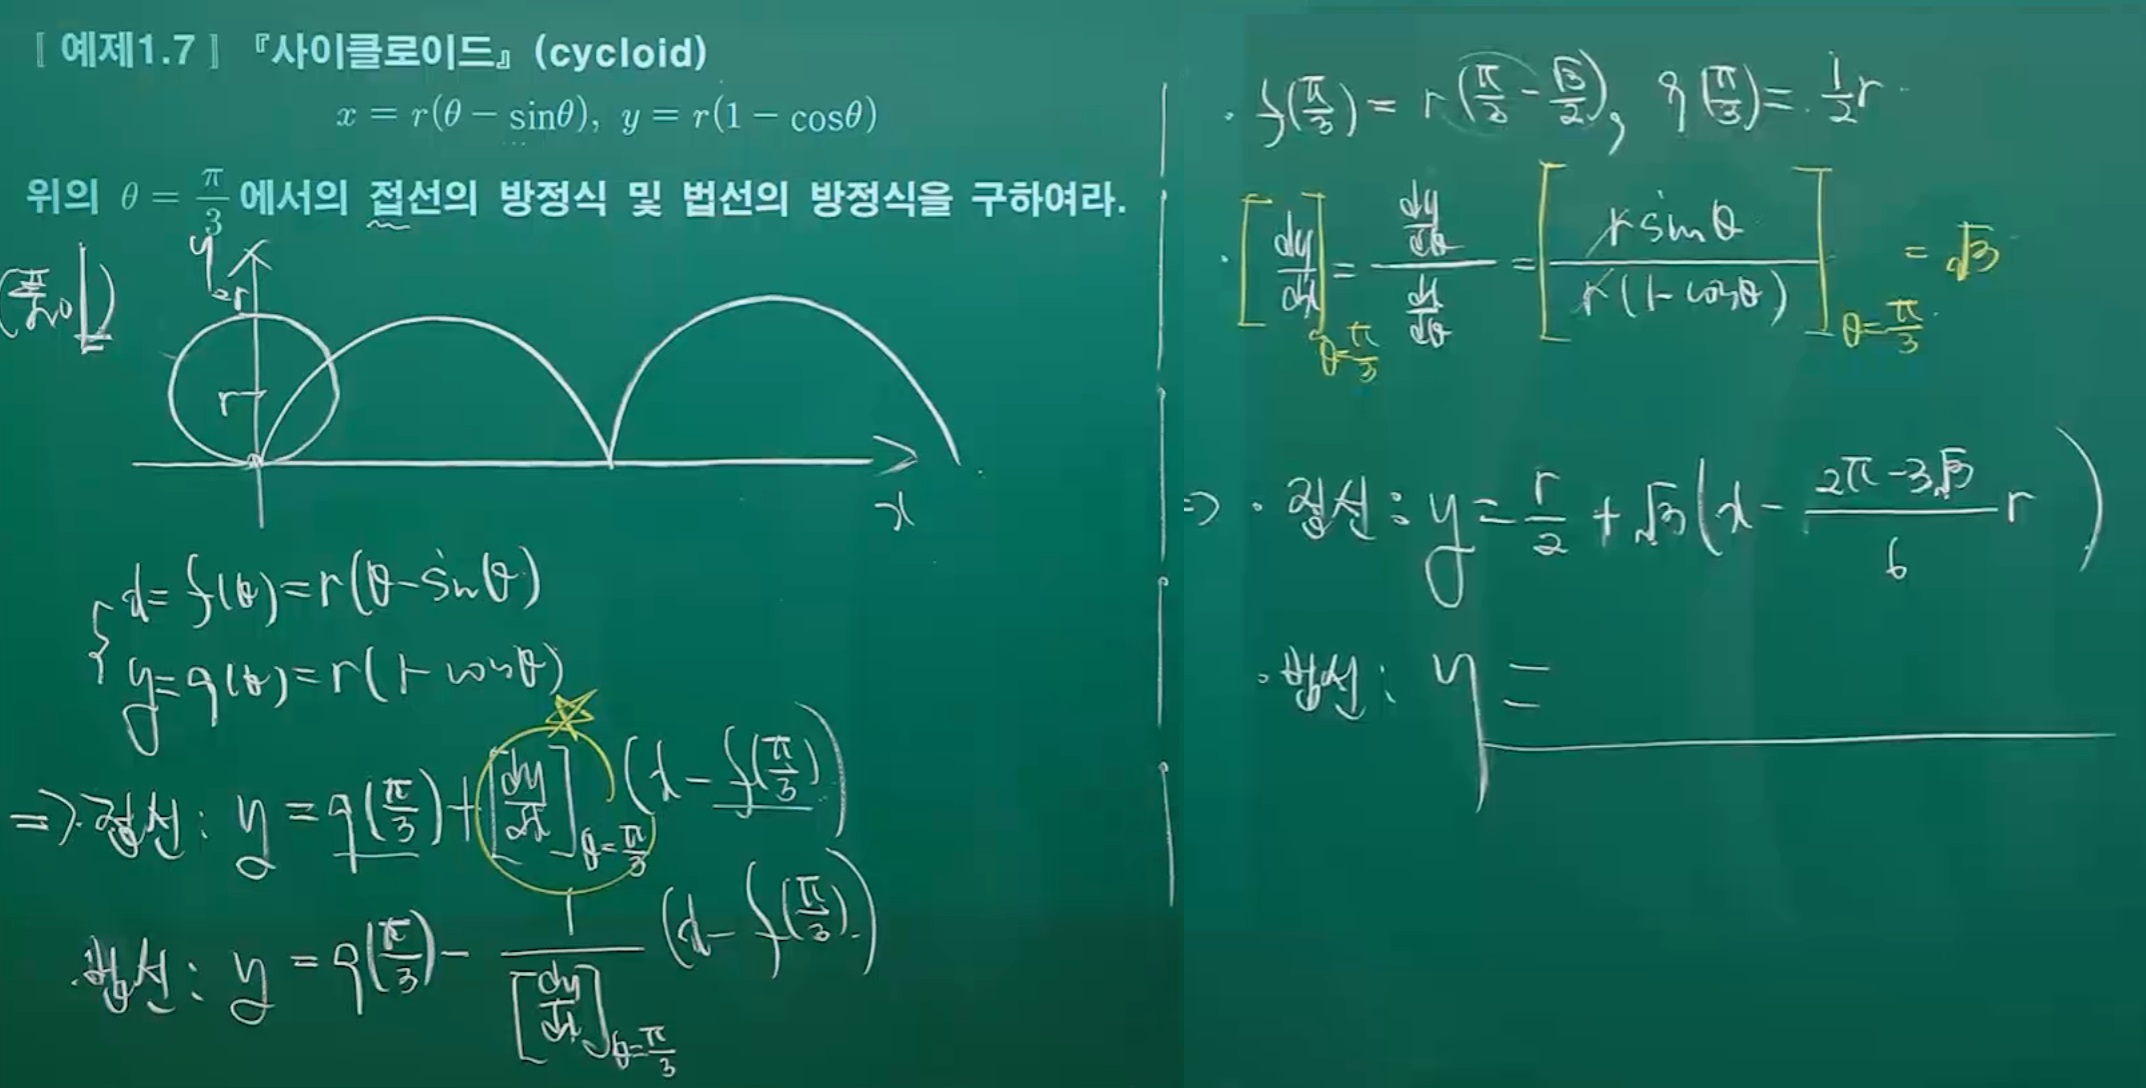 [ 예제1.7 ] 『사이클로이드』(cycloid)
x = r(θ − sinθ), y = r(1 − cosθ)
위의 θ = π/3 에서의 접선의 방정식 및 법선의 방정식을 구하여라.
(풀이)
y
2r
r
x
{ x = f(θ) = r(θ − sinθ)
y = g(θ) = r(1 − cosθ)
⇒ · 접선 : y = g(π/3) + [dy/dx]θ=π/3 (x − f(π/3))
· 법선 : y = g(π/3) − 1/[dy/dx]θ=π/3 (x − f(π/3))
· f(π/3) = r(π/3 − √3/2), g(π/3) = 1/2 r
· [dy/dx]θ=π/3 = (dy/dθ)/(dx/dθ) = [r sinθ / r(1 − cosθ)]θ=π/3 = √3
⇒ · 접선 : y = r/2 + √3(x − (2π − 3√3)/6 r)
· 법선 : y =